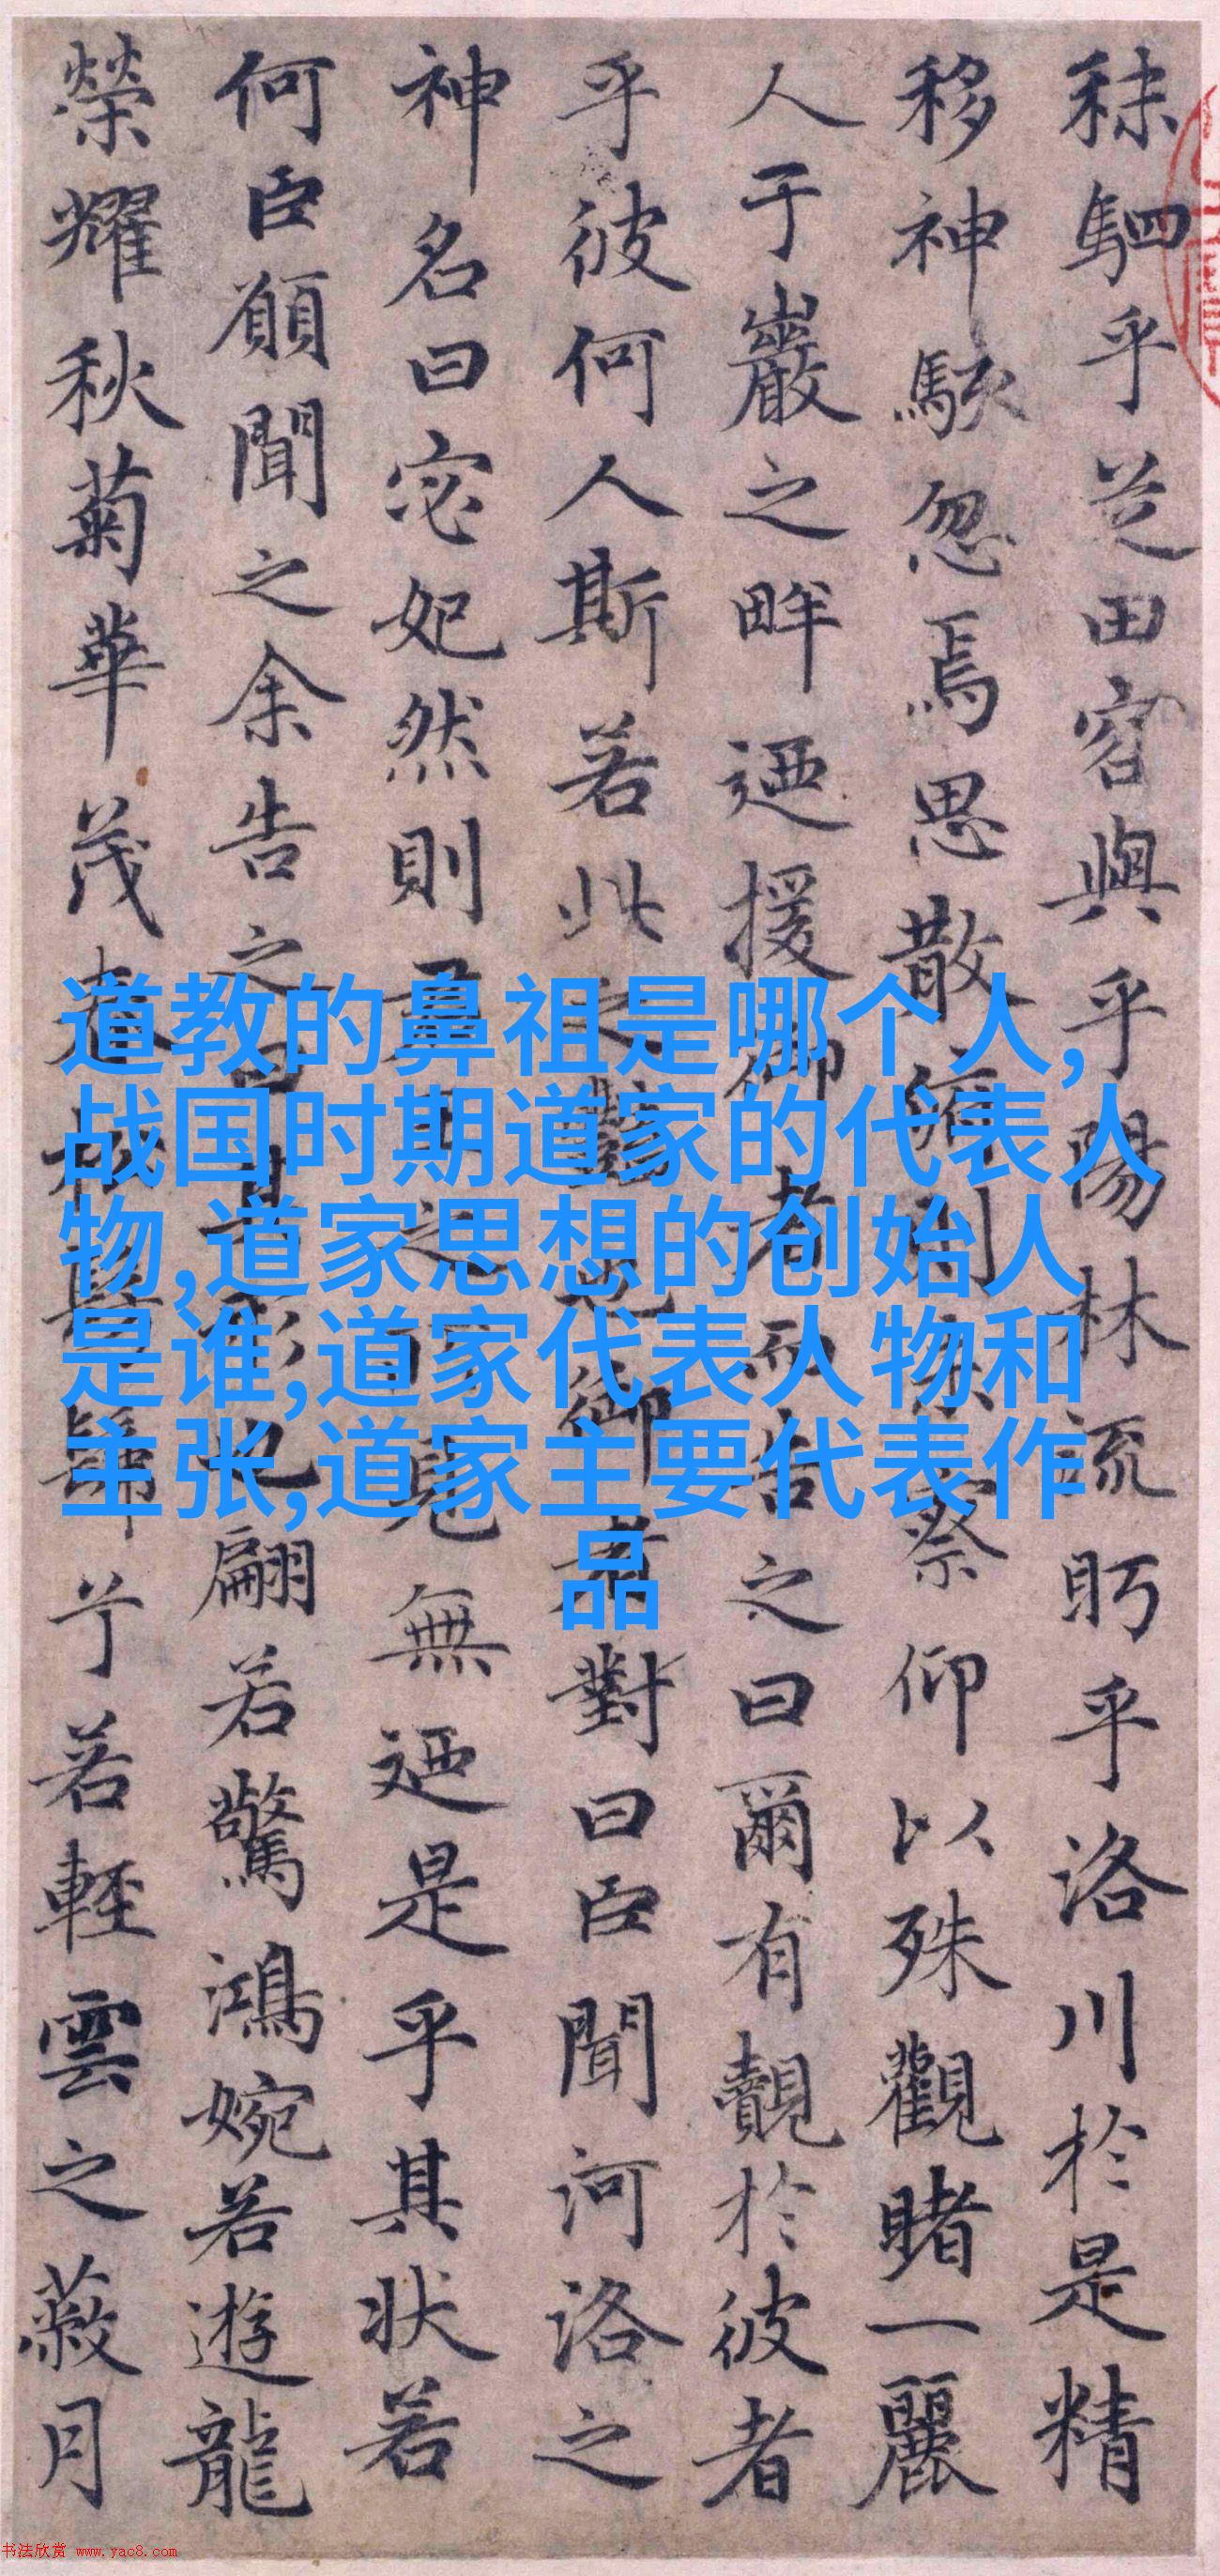 秣駟乎芝田容與乎陽林流眄乎洛川於是精
移神駭忽焉思散俯則未察仰以殊觀睹一麗
人于巖之畔迺援御者而告之曰爾有覿於彼者
乎彼何人斯若此之豔也御者對曰臣聞河洛之
神名曰宓妃然則君王之所見無迺是乎其狀若
何臣願聞之余告之曰其形也翩若驚鴻婉若遊龍
榮耀秋菊華茂春松髣髴兮若輕雲之蔽月
道教的鼻祖是哪个人,
战国时期道家的代表人
物,道家思想的创始人
是谁,道家代表人物和
主张,道家主要代表作
品
书法欣赏 www.yac8.com